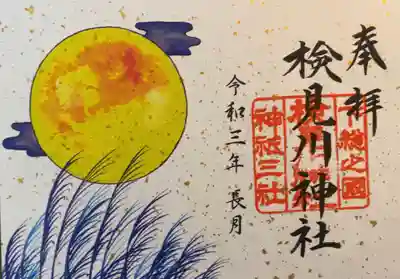 奉拝
検見川神社
令和三年 長月
下総之国
神祇三社